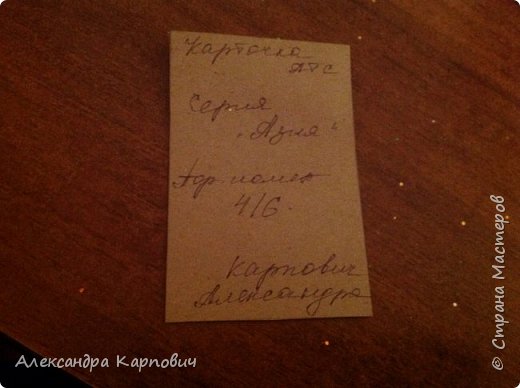 Карточка
АТС
Серия
"Азия"
пор. номер
4/6.
Карпович
Александра
Александра Карпович
© Страна Мастеров